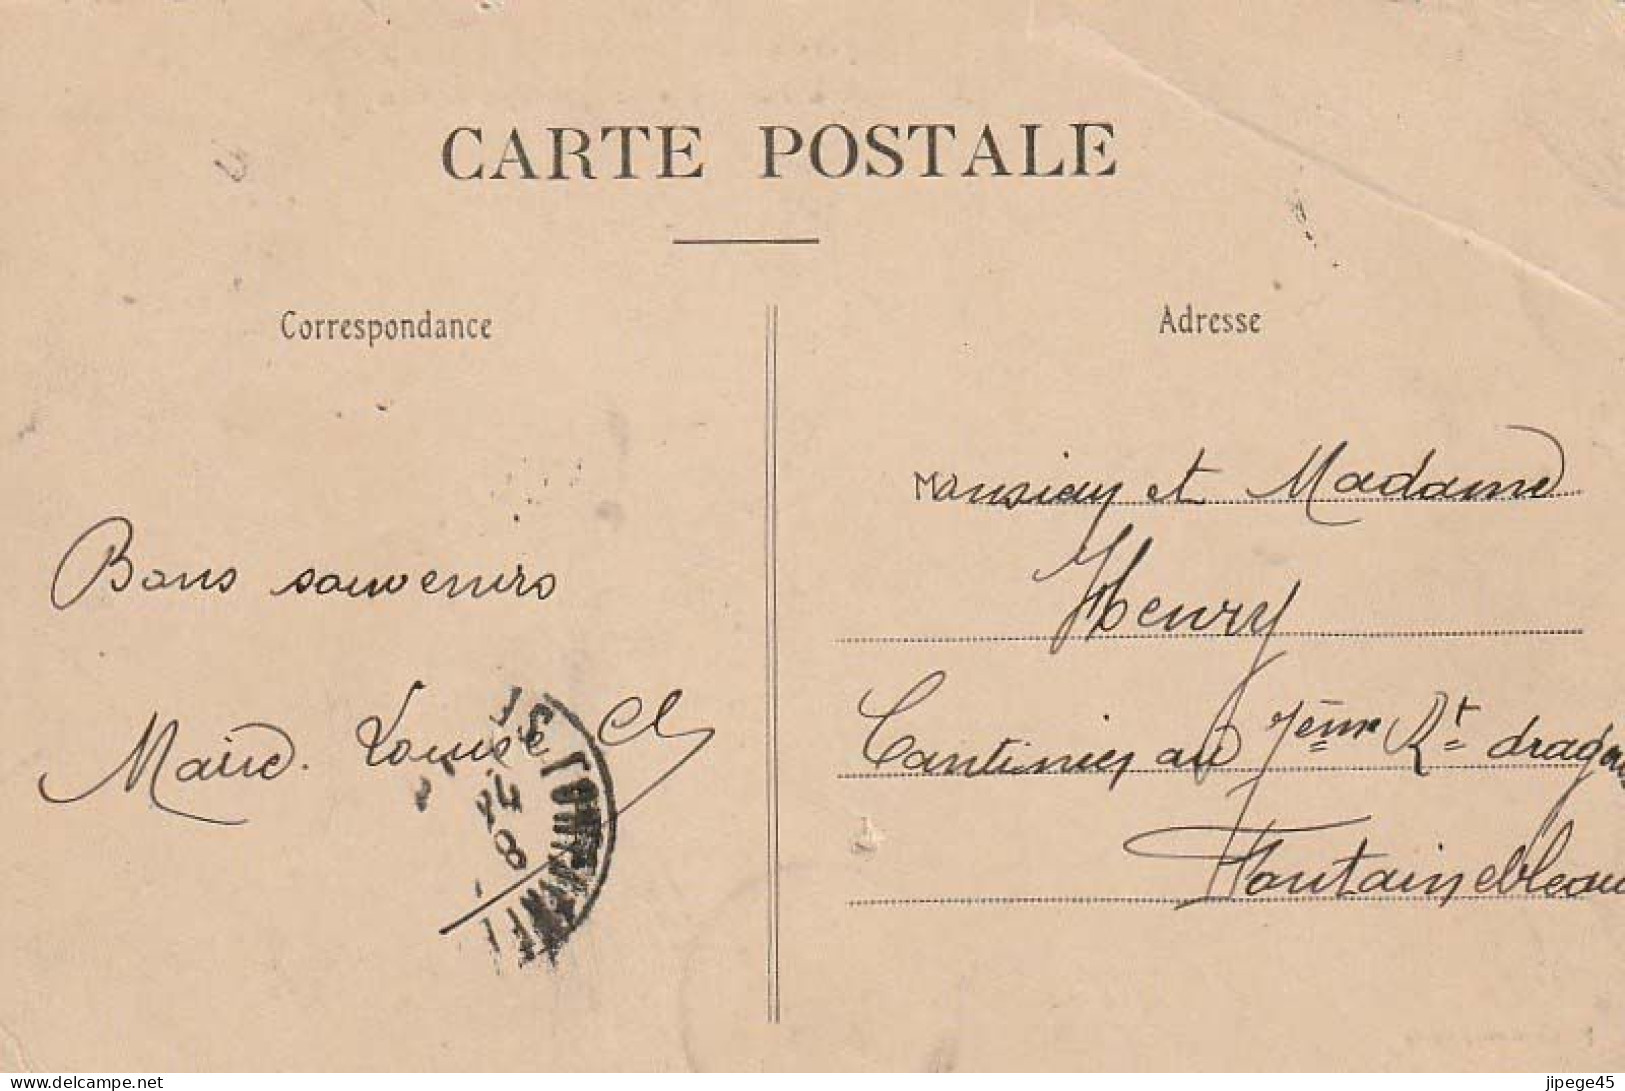 CARTE POSTALE
Correspondance
Adresse
Bons souvenirs
Marie. Louise
Monsieur et Madame
Henry
Cantinier au 7ème Rt dragons
Fontainebleau
24
8
delcampe.net
jipege45